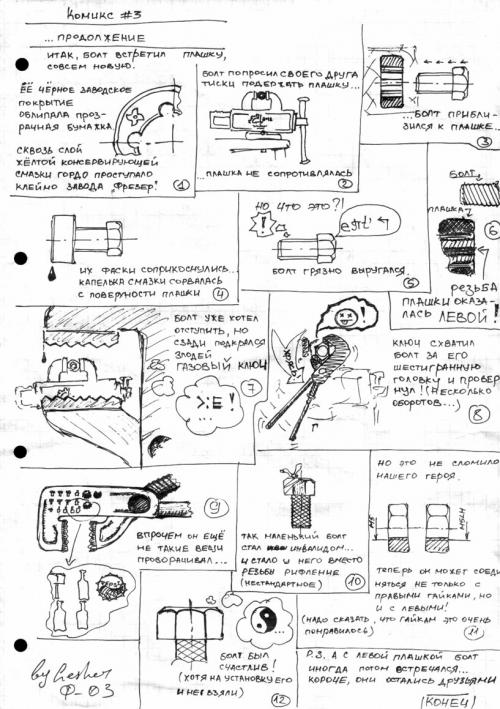 Комикс #3
...ПРОДОЛЖЕНИЕ
ИТАК, БОЛТ ВСТРЕТИЛ ПЛАШКУ,
СОВСЕМ НОВУЮ.
ЕЁ ЧЁРНОЕ ЗАВОДСКОЕ
ПОКРЫТИЕ
ОБЛИПАЛА ПРОЗ-
РАЧНАЯ БУМАЖКА
СКВОЗЬ СЛОЙ
ЖЁЛТОЙ КОНСЕРВИРУЮЩЕЙ
СМАЗКИ ГОРДО ПРОСТУПАЛО
КЛЕЙМО ЗАВОДА "ФРЕЗЕР!
1
БОЛТ ПОПРОСИЛ СВОЕГО ДРУГА
ТИСКИ ПОДЕРЖАТЬ ПЛАШКУ...
...ПЛАШКА НЕ СОПРОТИВЛЯЛАСЬ
2
...БОЛТ ПРИБЛИ-
ЗИЛСЯ К ПЛАШКЕ...
3
ИХ ФАСКИ СОПРИКОСНУЛИСЬ...
КАПЕЛЬКА СМАЗКИ СОРВАЛАСЬ
С ПОВЕРХНОСТИ ПЛАШКИ
4
НО ЧТО ЭТО?!
!
БОЛТ ГРЯЗНО ВЫРУГАЛСЯ.
5
БОЛТ
ПЛАШКА
6
РЕЗЬБА
ПЛАШКИ ОКАЗА-
ЛАСЬ ЛЕВОЙ!
БОЛТ УЖЕ ХОТЕЛ
ОТСТУПИТЬ, НО
СЗАДИ ПОДКРАЛСЯ
ЗЛОДЕЙ
ГАЗОВЫЙ КЛЮЧ
7
>:E !
!
КЛЮЧ СХВАТИЛ
БОЛТ ЗА ЕГО
ШЕСТИГРАННУЮ
ГОЛОВКУ И ПРОВЕР
НУЛ! (НЕСКОЛЬКО
ОБОРОТОВ...)
8
9
ВПРОЧЕМ ОН ЕЩЁ
НЕ ТАКИЕ ВЕЩИ
ПРОВОРАЧИВАЛ...
ТАК МАЛЕНЬКИЙ БОЛТ
СТАЛ ИНВАЛИДОМ...
И СТАЛО У НЕГО ВМЕСТО
РЕЗЬБЫ РИФЛЕНИЕ
(НЕСТАНДАРТНОЕ)
10
НО ЭТО НЕ СЛОМИЛО
НАШЕГО ГЕРОЯ.
М6
М6LH
ТЕПЕРЬ ОН МОЖЕТ СОЕДИ
НЯТЬСЯ НЕ ТОЛЬКО С
ПРАВЫМИ ГАЙКАМИ, НО
И С ЛЕВЫМИ!
(НАДО СКАЗАТЬ, ЧТО ГАЙКАМ ЭТО ОЧЕНЬ
ПОНРАВИЛОСЬ)
11
БОЛТ БЫЛ
СЧАСТЛИВ!
(ХОТЯ НА УСТАНОВКУ ЕГО
И НЕ ВЗЯЛИ)
12
P.S. А С ЛЕВОЙ ПЛАШКОЙ БОЛТ
ИНОГДА ПОТОМ ВСТРЕЧАЛСЯ...
КОРОЧЕ, ОНИ ОСТАЛИСЬ ДРУЗЬЯМИ
(КОНЕЦ)
by
Ф-03